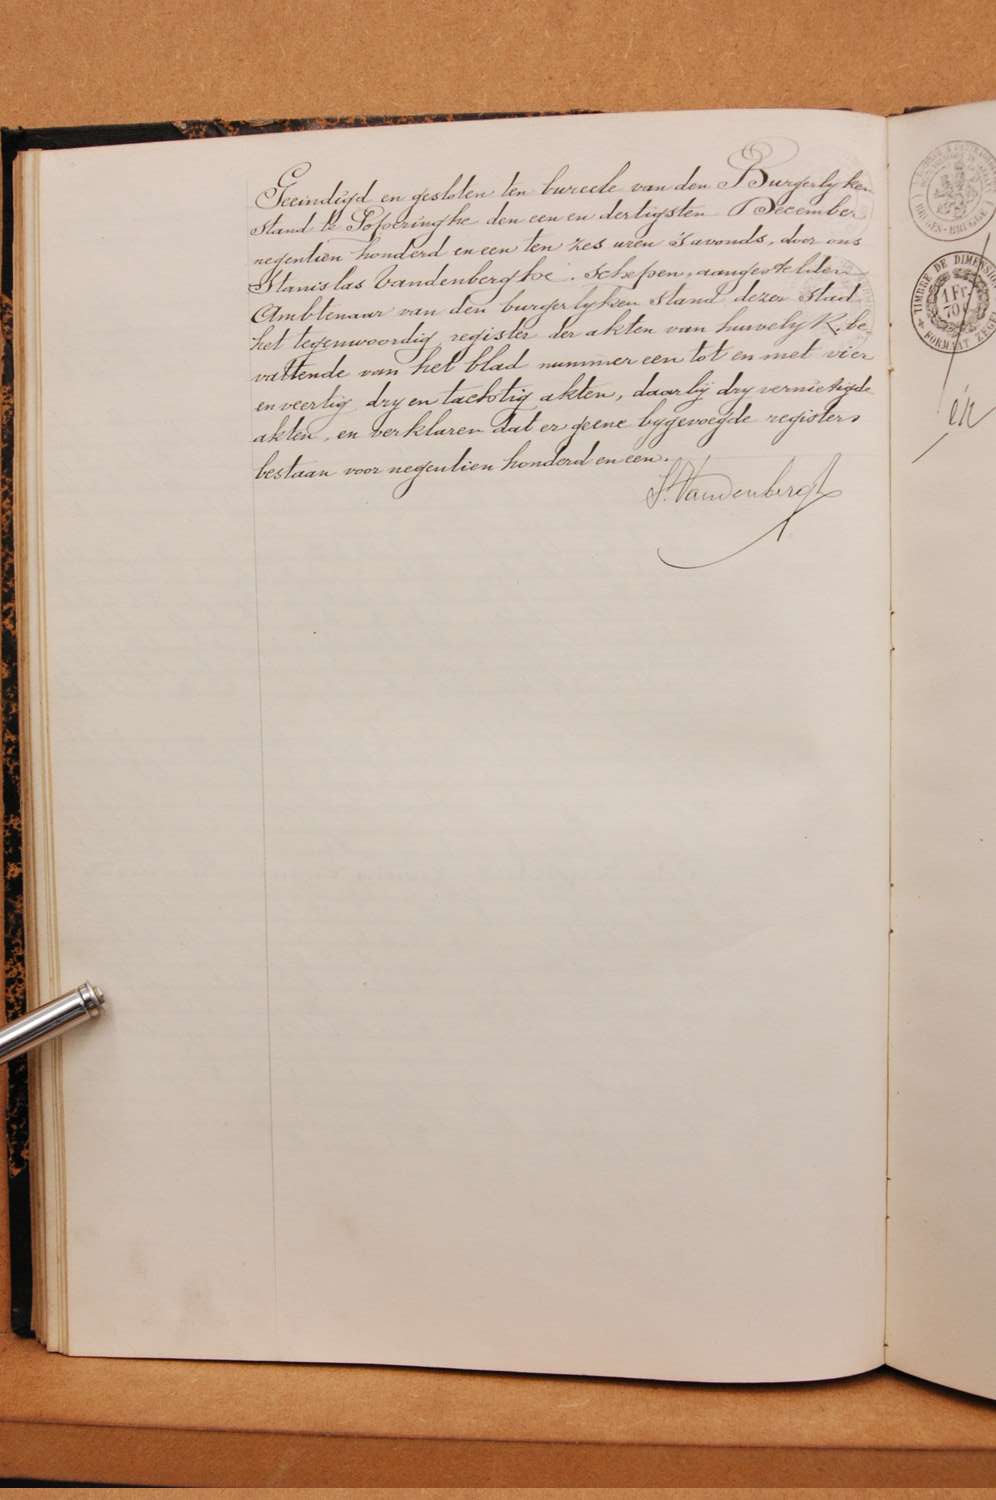 Geeindigd en gesloten ten bureele van den Burgerlyken
stand te Poperinghe den een en dertigsten December
negentien honderd en een ten zes uren s'avonds, door ons
Stanislas Vandenberghe, schepen, aangestelden
Ambtenaar van den burgerlyken stand dezer stad
het tegenwoordig register der akten van huwelyk, be-
vattende van het blad nummer een tot en met vier
en veertig dry en tachtig akten, daarbij dry vernietigde
akten, en verklaren dat er geene bygevoegde registers
bestaan voor negentien honderd en een.
S. Vandenbergh
BRUGES-BRUGGE
TIMBRE DE DIMENSION
1 Fr.
70 c
FORMAT